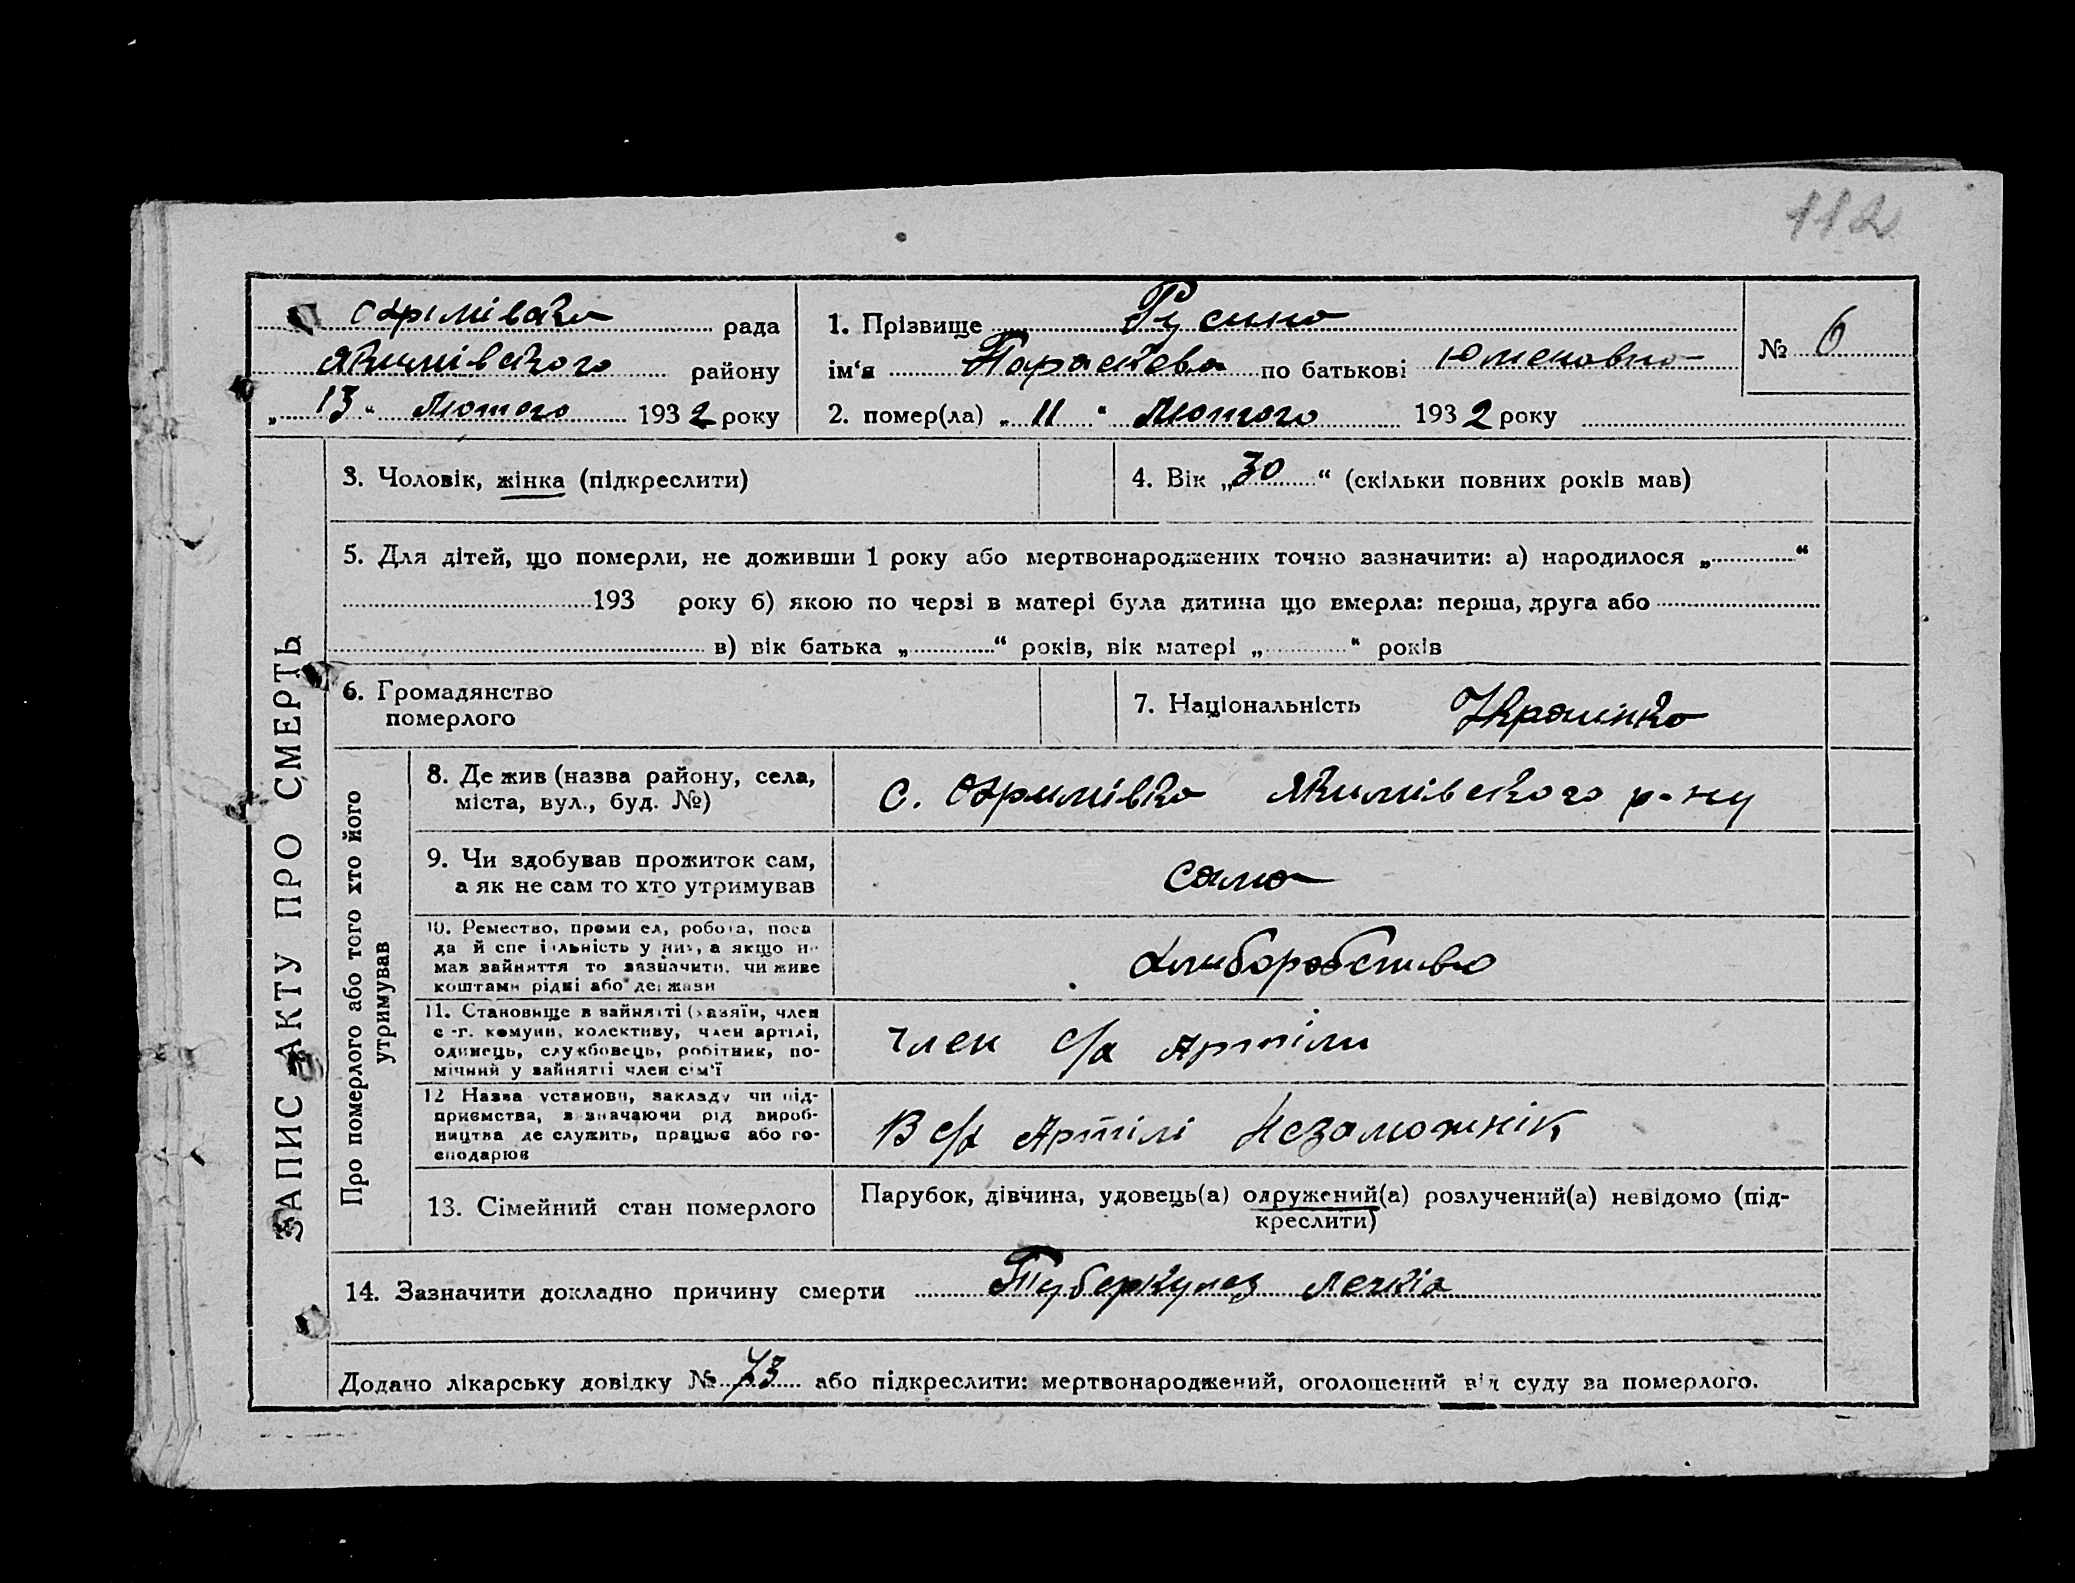 112
Охрімівска рада
Якимівского району
„ 13 " Лютого 1932 року
1. Прізвище Гусина
ім'я Параскева по батькові
№ 6
2. помер(ла) „ 11 " Лютого 1932 року
ЗАПИС АКТУ ПРО СМЕРТЬ
3. Чоловік, жінка (підкреслити)
4. Вік „30" (скільки повних років мав)
5. Для дітей, що померли, не доживши 1 року або мертвонароджених точно зазначити: а) народилося „ "
193 року б) якою по черзі в матері була дитина що вмерла: перша, друга або
в) вік батька „ " років, вік матері „ " років
6. Громадянство
померлого
7. Національність Украінка
Про померлого або того хто його
утримував
8. Де жив (назва району, села,
міста, вул., буд. №)
с. Охримівка Якимівского р-ну
9. Чи здобував прожиток сам,
а як не сам то хто утримував
сама
10. Ремество, проми ел, робота, поса
да й спе іяльність у них, а якщо н-
мав зайняття то зазначити, чи живе
коштами рідні або держави
хліборобство
11. Становище в зайнятті (хазяїн, член
с -г. комуни, колективу, член артілі,
одинець, службовець, робітник, по-
мічний у зайнятті член сім'ї
Член с/х Артіли
12 Назва установи, закладу чи під-
приємства, зазначаючи рід вироб-
ництва де служить, працює або го-
сподарює
В с/х Артілі Незаможнік
13. Сімейний стан померлого
Парубок, дівчина, удовець(а) одружений(а) розлучений(а) невідомо (під-
креслити)
14. Зазначити докладно причину смерти Туберкулез легкіх
Додано лікарську довідку № 73 або підкреслити: мертвонароджений, оголошений від суду за померлого.